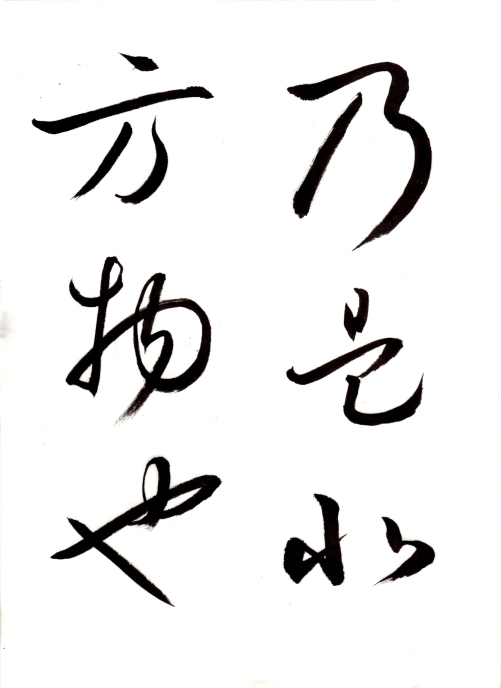 乃是北
方物也